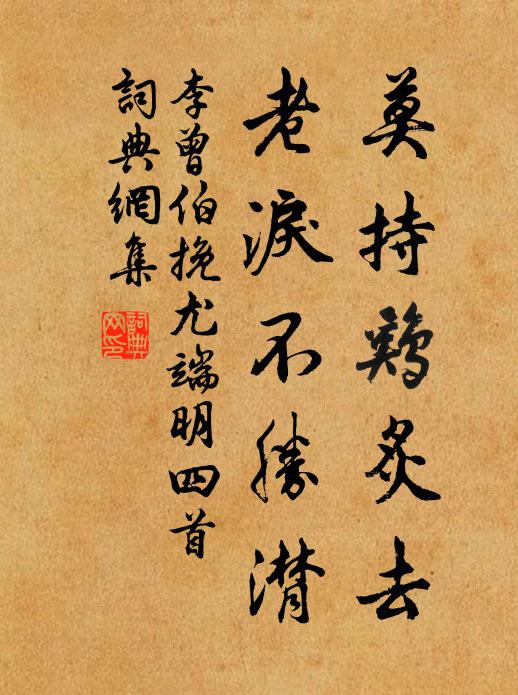 莫持鷄炙去
老淚不勝潸
李曾伯挽尤端明四首
詞典網集